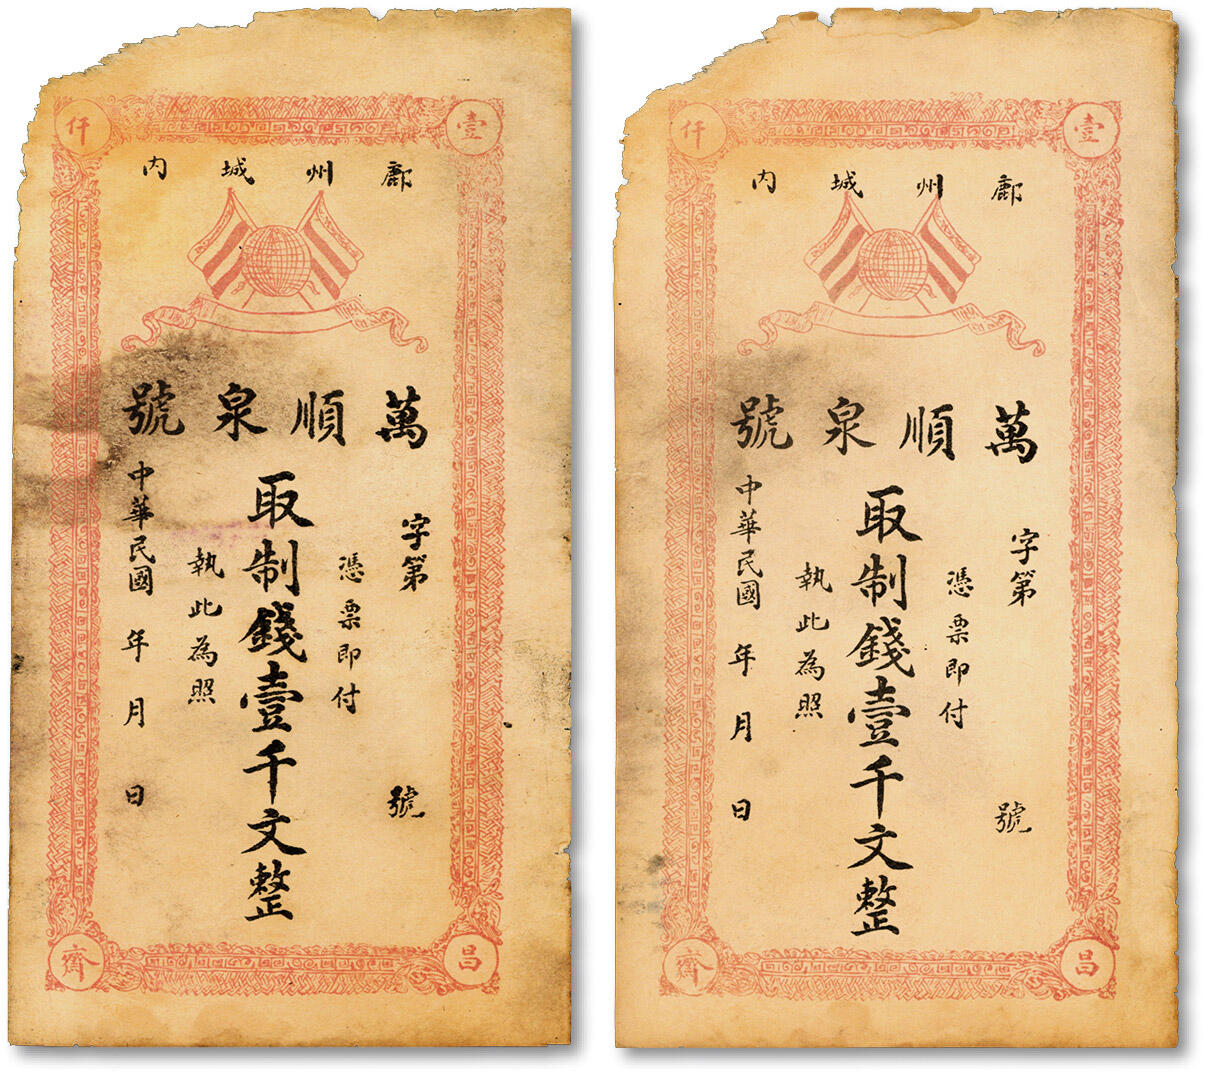 壹仟
鄜州城内
萬順泉號
字第 號
憑票即付
取制錢壹千文整
執此為照
中華民國 年 月 日
昌齋
壹仟
鄜州城内
萬順泉號
字第 號
憑票即付
取制錢壹千文整
執此為照
中華民國 年 月 日
昌齋